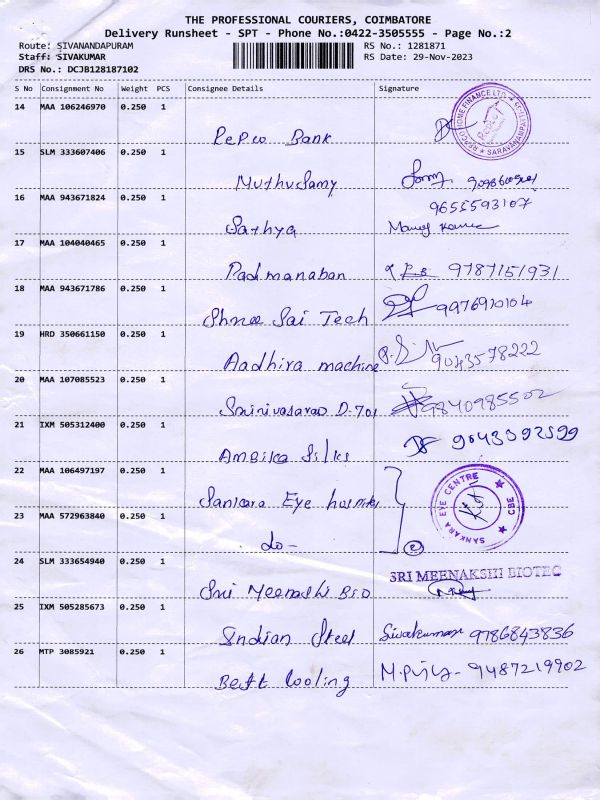 THE PROFESSIONAL COURIERS, COIMBATORE
Delivery Runsheet - SPT - Phone No.:0422-3505555 - Page No.:2
Route: SIVANANDAPURAM RS No.: 1281871
Staff: SIVAKUMAR RS Date: 29-Nov-2023
DRS No.: DCJB128187102
S No Consignment No Weight PCS Consignee Details Signature
14 MAA 106246970 0.250 1
Repco Bank
SARAVANAMPATTI
15 SLM 333607406 0.250 1
Muthusamy
16 MAA 943671824 0.250 1 9655593107
Sathya
17 MAA 104040465 0.250 1
Padmanaban 9787151931
18 MAA 943671786 0.250 1
Shree Sai Tech 9976920104
19 HRD 350661150 0.250 1
Aadhira machine 9043578222
20 MAA 107085523 0.250 1
Srinivasarao D-701 9840985502
21 IXM 505312400 0.250 1
Ambika Silks 9043092599
22 MAA 106497197 0.250 1
Sankara Eye hospital
SANKARA EYE CENTRE CBE
23 MAA 572963840 0.250 1
do- 2
24 SLM 333654940 0.250 1
SRI MEENAKSHI BIOTEC
Sri Meenashi Bio
25 IXM 505285673 0.250 1
Indian Steel Sivakumar 9786843836
26 MTP 3085921 0.250 1
Bestt Cooling 9487219902